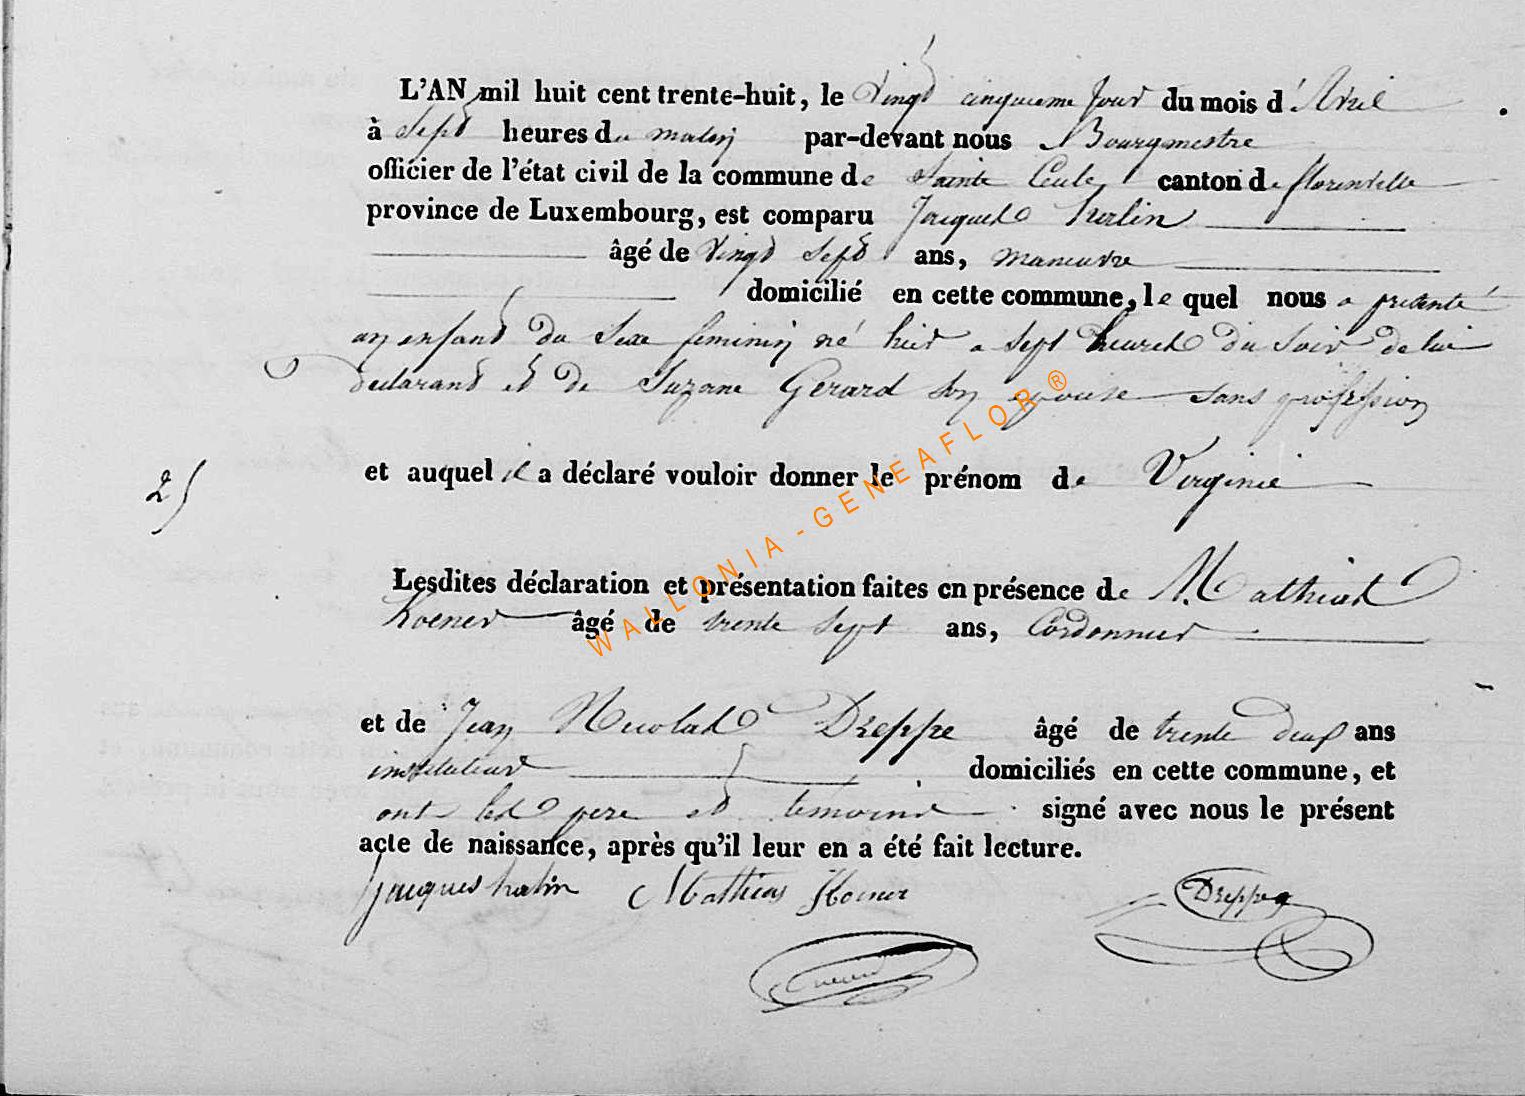 L'AN mil huit cent trente-huit, le Vingt cinquieme jour du mois d'Avril
à Sept heures du matin par-devant nous Bourgmestre
officier de l'état civil de la commune de Sainte Cecile canton de florenville
province de Luxembourg, est comparu Jacques
âgé de Vingt Sept ans, maneuvre
domicilié en cette commune, le quel nous a présenté
un enfant du Sexe feminin né hier a Sept heures du Soir de lui
declarant et de Suzane Gerard son epouse sans profession
25 et auquel il a déclaré vouloir donner le prénom de Virginie
Lesdites déclaration et présentation faites en présence de Mathias
Koener âgé de trente Sept ans, Cordonnier
et de Jean Nicolas Dreppe âgé de trente deux ans
instituteur domiciliés en cette commune, et
ont les pere et temoins signé avec nous le présent
acte de naissance, après qu'il leur en a été fait lecture.
Jacques Mathias Koener Dreppe
WALLONIA-GENEAFLOR®